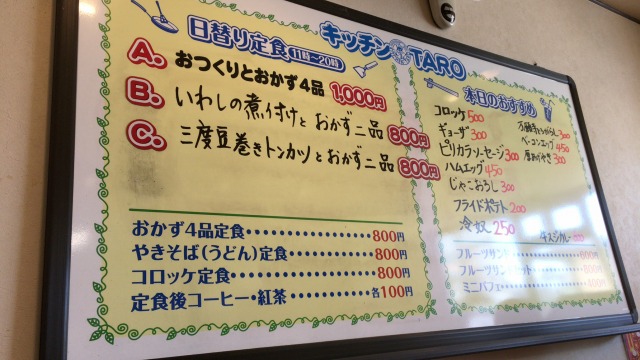 キッチン TARO
日替り定食(11時〜20時)
A. おつくりとおかず4品 1,000円
B. いわしの煮付けと おかず二品 800円
C. 三度豆巻きトンカツとおかず二品 800円
おかず4品定食 800円
やきそば(うどん)定食 800円
コロッケ定食 800円
定食後コーヒー・紅茶 各100円
本日のおすすめ
コロッケ 500
ギョーザ 300
ピリカラソーセージ 300
ハムエッグ 450
じゃこおろし 300
フライドポテト 200
冷奴 250
万願寺とうがらし 300
ベーコンエッグ 450
厚あげやき 300
牛スジカレー
フルーツサンド
フルーツサンド
ミニパフェ